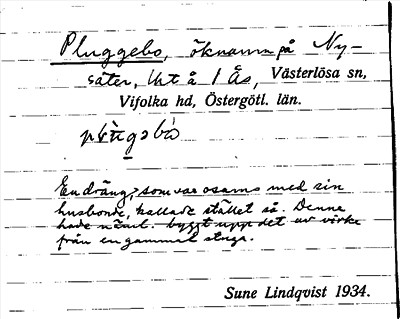 Pluggebo, öknamn på Ny-
säter, Ut å 1 Ås, Västerlösa sn,
Vifolka hd, Östergötl. län.
En dräng, som var osams med sin
husbonde, kallade stället så. Denne
hade näml. byggt upp det av virke
från en gammal stuga.
Sune Lindqvist 1934.